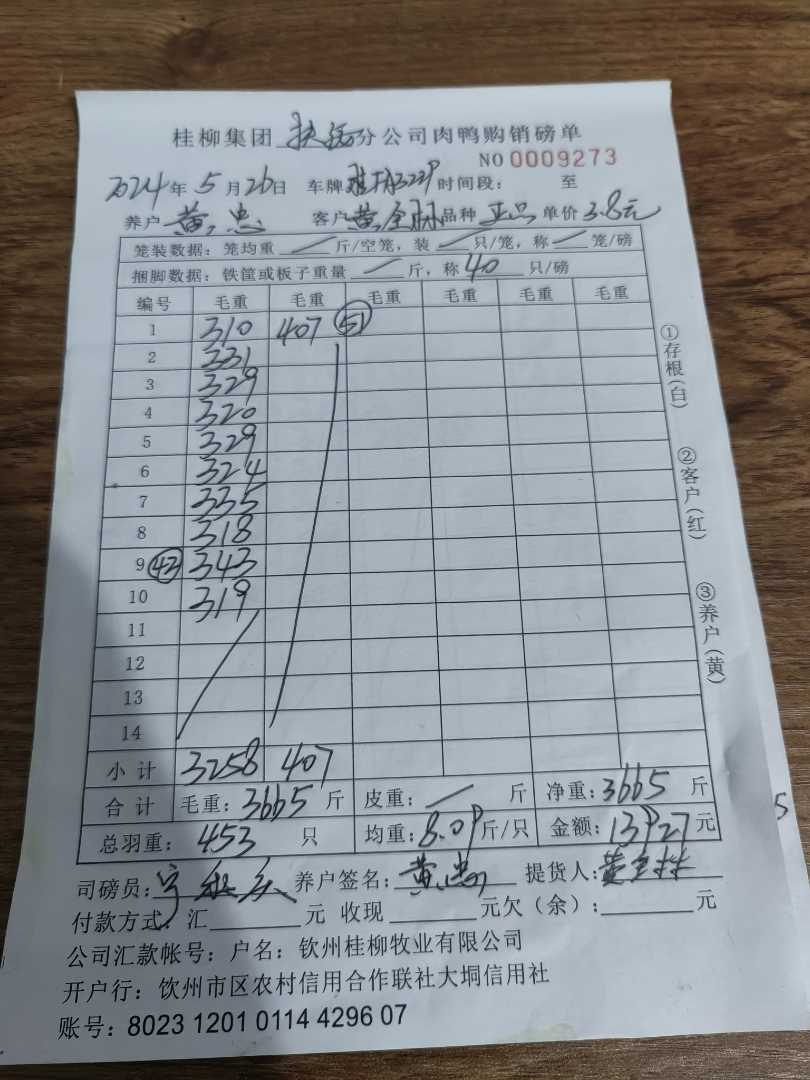 桂柳集团 扶绥 分公司肉鸭购销磅单
NO 0009273
2024 年 5 月 26 日 车牌 时间段： 至
养户 黄忠 客户 黄全林 品种 正品 单价 3.8元
笼装数据：笼均重 / 斤/空笼，装 / 只/笼，称 / 笼/磅
捆脚数据：铁筐或板子重量 / 斤，称 40 只/磅
编号 毛重 毛重 毛重 毛重 毛重 毛重
1 310 407 51
2 331
3 329
4 320
5 329
6 324
7 335
8 318
9 43 343
10 319
11
12
13
14
小计 3258 407
合计 毛重：3665 斤 皮重：/ 斤 净重：3665 斤
总羽重：453 只 均重：8.09 斤/只 金额：13927 元
司磅员： 养户签名：黄忠 提货人：黄全林
付款方式：汇 元 收现 元欠（余）： 元
公司汇款帐号：户名：钦州桂柳牧业有限公司
开户行：钦州市区农村信用合作联社大垌信用社
账号：8023 1201 0114 4296 07
①存根（白）
②客户（红）
③养户（黄）
5